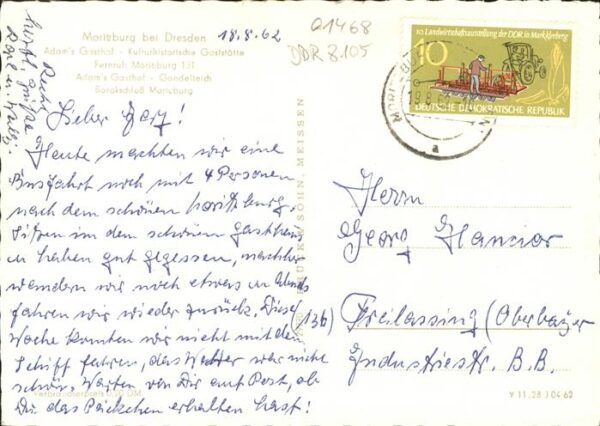 Moritzburg bei Dresden
18.8.62
Adam's Gasthof - Kulturhistorische Gaststätte
Fernruf: Moritzburg 131
Adam's Gasthof - Gondelteich
Barockschloß Moritzburg
Q1468
DDR 8.105
10. Landwirtschaftsausstellung der DDR in Markkleeberg
10
DEUTSCHE DEMOKRATISCHE REPUBLIK
a
Recht
herzl. Grüße
Lieber
Heute machten wir eine
Busfahrt noch mit 4 Personen
nach dem schönen Moritzburg.
Sitzen in dem schönen Gasthaus
u haben gut gegessen, nachher
wandern wir noch etwas u Abends
fahren wir wieder zurück. Diese
Woche konnten wir nicht mit dem
Schiff fahren, das Wetter war nicht
schön. Warten von Dir auf Post, ob
Du das Päckchen erhalten hast!
BRÜCK & SOHN, MEISSEN
Herrn
Georg
13b) Freilassing (Oberbayer
Industriestr. B.B.
Verbraucherpreis 0,20 DM
V 11.28 J 04 62